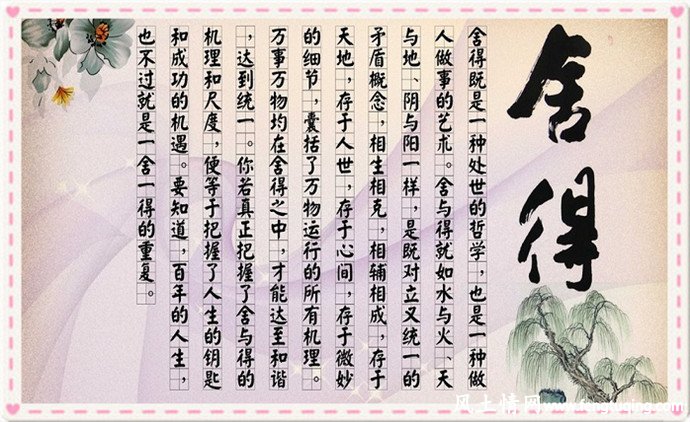 舍得
舍得既是一种处世的哲学，也是一种做
人做事的艺术。舍与得就如水与火、天
与地、阴与阳一样，是既对立又统一的
矛盾概念，相生相克，相辅相成，存于
天地，存于人世，存于心间，存于微妙
的细节，囊括了万物运行的所有机理。
万事万物均在舍得之中，才能达至和谐
，达到统一。你若真正把握了舍与得的
机理和尺度，便等于把握了人生的钥匙
和成功的机遇。要知道，百年的人生，
也不过就是一舍一得的重复。
风土情网